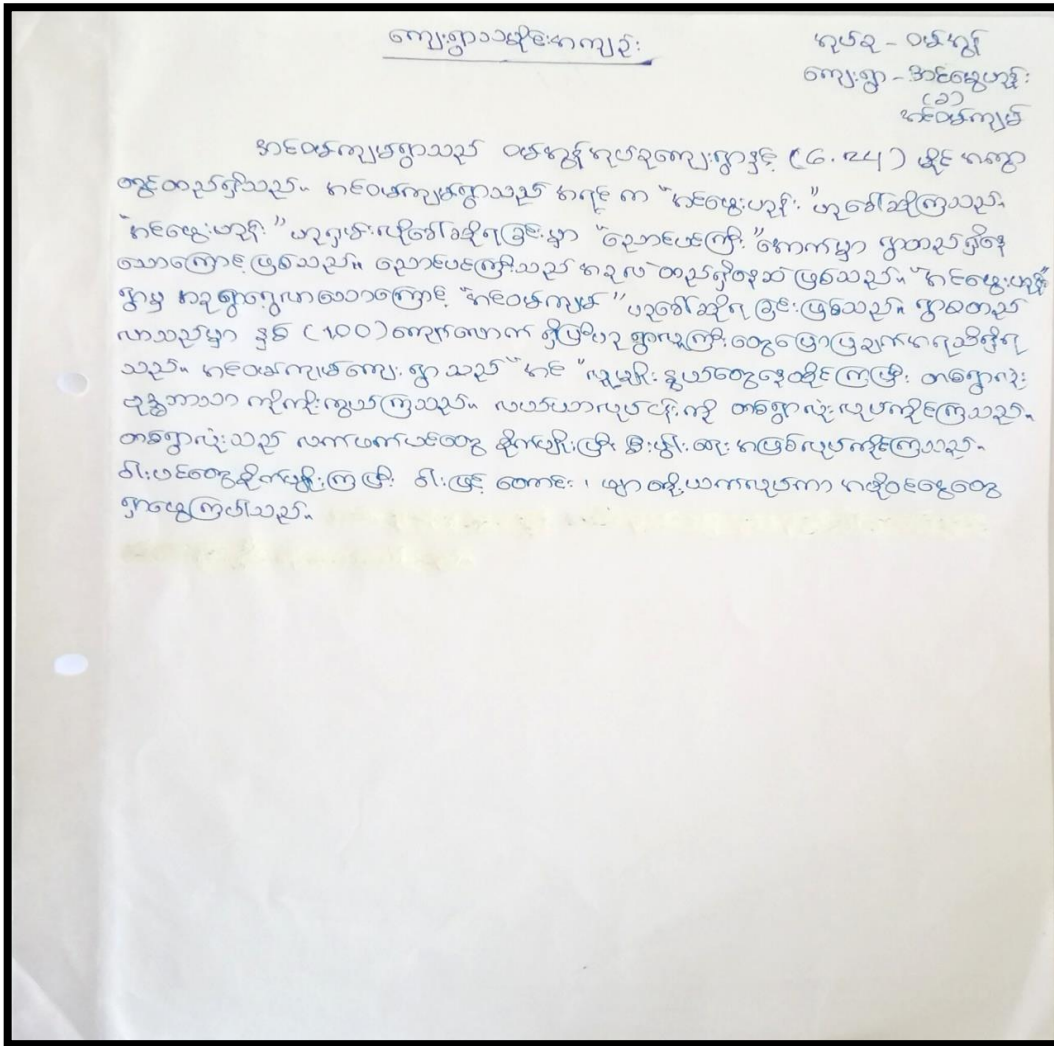 ကျေးရွာသမိုင်းအကျဉ်း
အုပ်စု - ဝမ်အွန်
ကျေးရွာ - အင်မွေဟုန်း
(ခ)
အင်ဝမ်ကျမ်
အင်ဝမ်ကျမ်ရွာသည် ဝမ်အွန်အုပ်စုကျေးရွာနှင့် (6.24) မိုင် အကွာ
တွင်တည်ရှိသည်။ အင်ဝမ်ကျမ်ရွာသည် အရင်က "အင်မွေးဟုန်း" ဟုခေါ်ဆိုကြသည်။
"အင်မွေးဟုန်း" ဟုရှမ်းလိုခေါ်ဆိုရခြင်းမှာ "ညောင်ပင်ကြီး" အောက်မှာ ရွာတည်ရှိနေ
သောကြောင့်ဖြစ်သည်။ ညောင်ပင်ကြီးသည် အခုလဲ တည်ရှိနေဆဲ ဖြစ်သည်။ "အင်မွေးဟုန်း"
ရွာမှ အခုရွာရွှေ့လာသောကြောင့် "အင်ဝမ်ကျမ်" ဟုခေါ်ဆိုရခြင်းဖြစ်သည်။ ရွာစတည်
လာသည်မှာ နှစ် (100) ကျော်လောက် ရှိပြီဟု ရွာလူကြီးတွေပြောပြချက်အရသိရှိရ
သည်။ အင်ဝမ်ကျမ်ကျေးရွာသည် "အင်" လူမျိုးနွယ်တွေနေထိုင်ကြပြီး တစ်ရွာလုံး
ဗုဒ္ဓဘာသာ ကိုးကွယ်ကြသည်။ လယ်ယာလုပ်ငန်းကို တစ်ရွာလုံးလုပ်ကိုင်ကြသည်။
တစ်ရွာလုံးသည် လက်ဖက်ပင်တွေ စိုက်ပျိုးပြီး စီးပွါးရေး အဖြစ်လုပ်ကိုင်ကြသည်။
ဝါးပင်တွေစိုက်ပျိုးကြပြီး ဝါးဖြင့် တောင်း၊ ဖျာ တို့ယက်လုပ်ကာ အပိုဝင်ငွေတွေ
ရှာဖွေကြပါသည်။